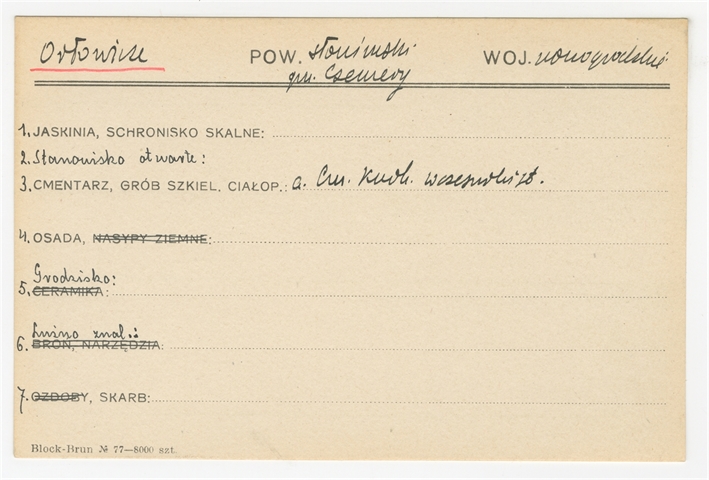 Orłowicze POW. słonimski WOJ. nowogródzkie
gm. Czemery
1. JASKINIA, SCHRONISKO SKALNE:
2. Stanowisko otwarte:
3. CMENTARZ, GRÓB SZKIEL. CIAŁOP.: a. Cm. kurh.
4. OSADA, NASYPY ZIEMNE:
Grodzisko:
5. CERAMIKA:
Luźno znal.:
6. BROŃ, NARZĘDZIA:
7. OZDOBY, SKARB:
Block-Brun № 77—8000 szt.